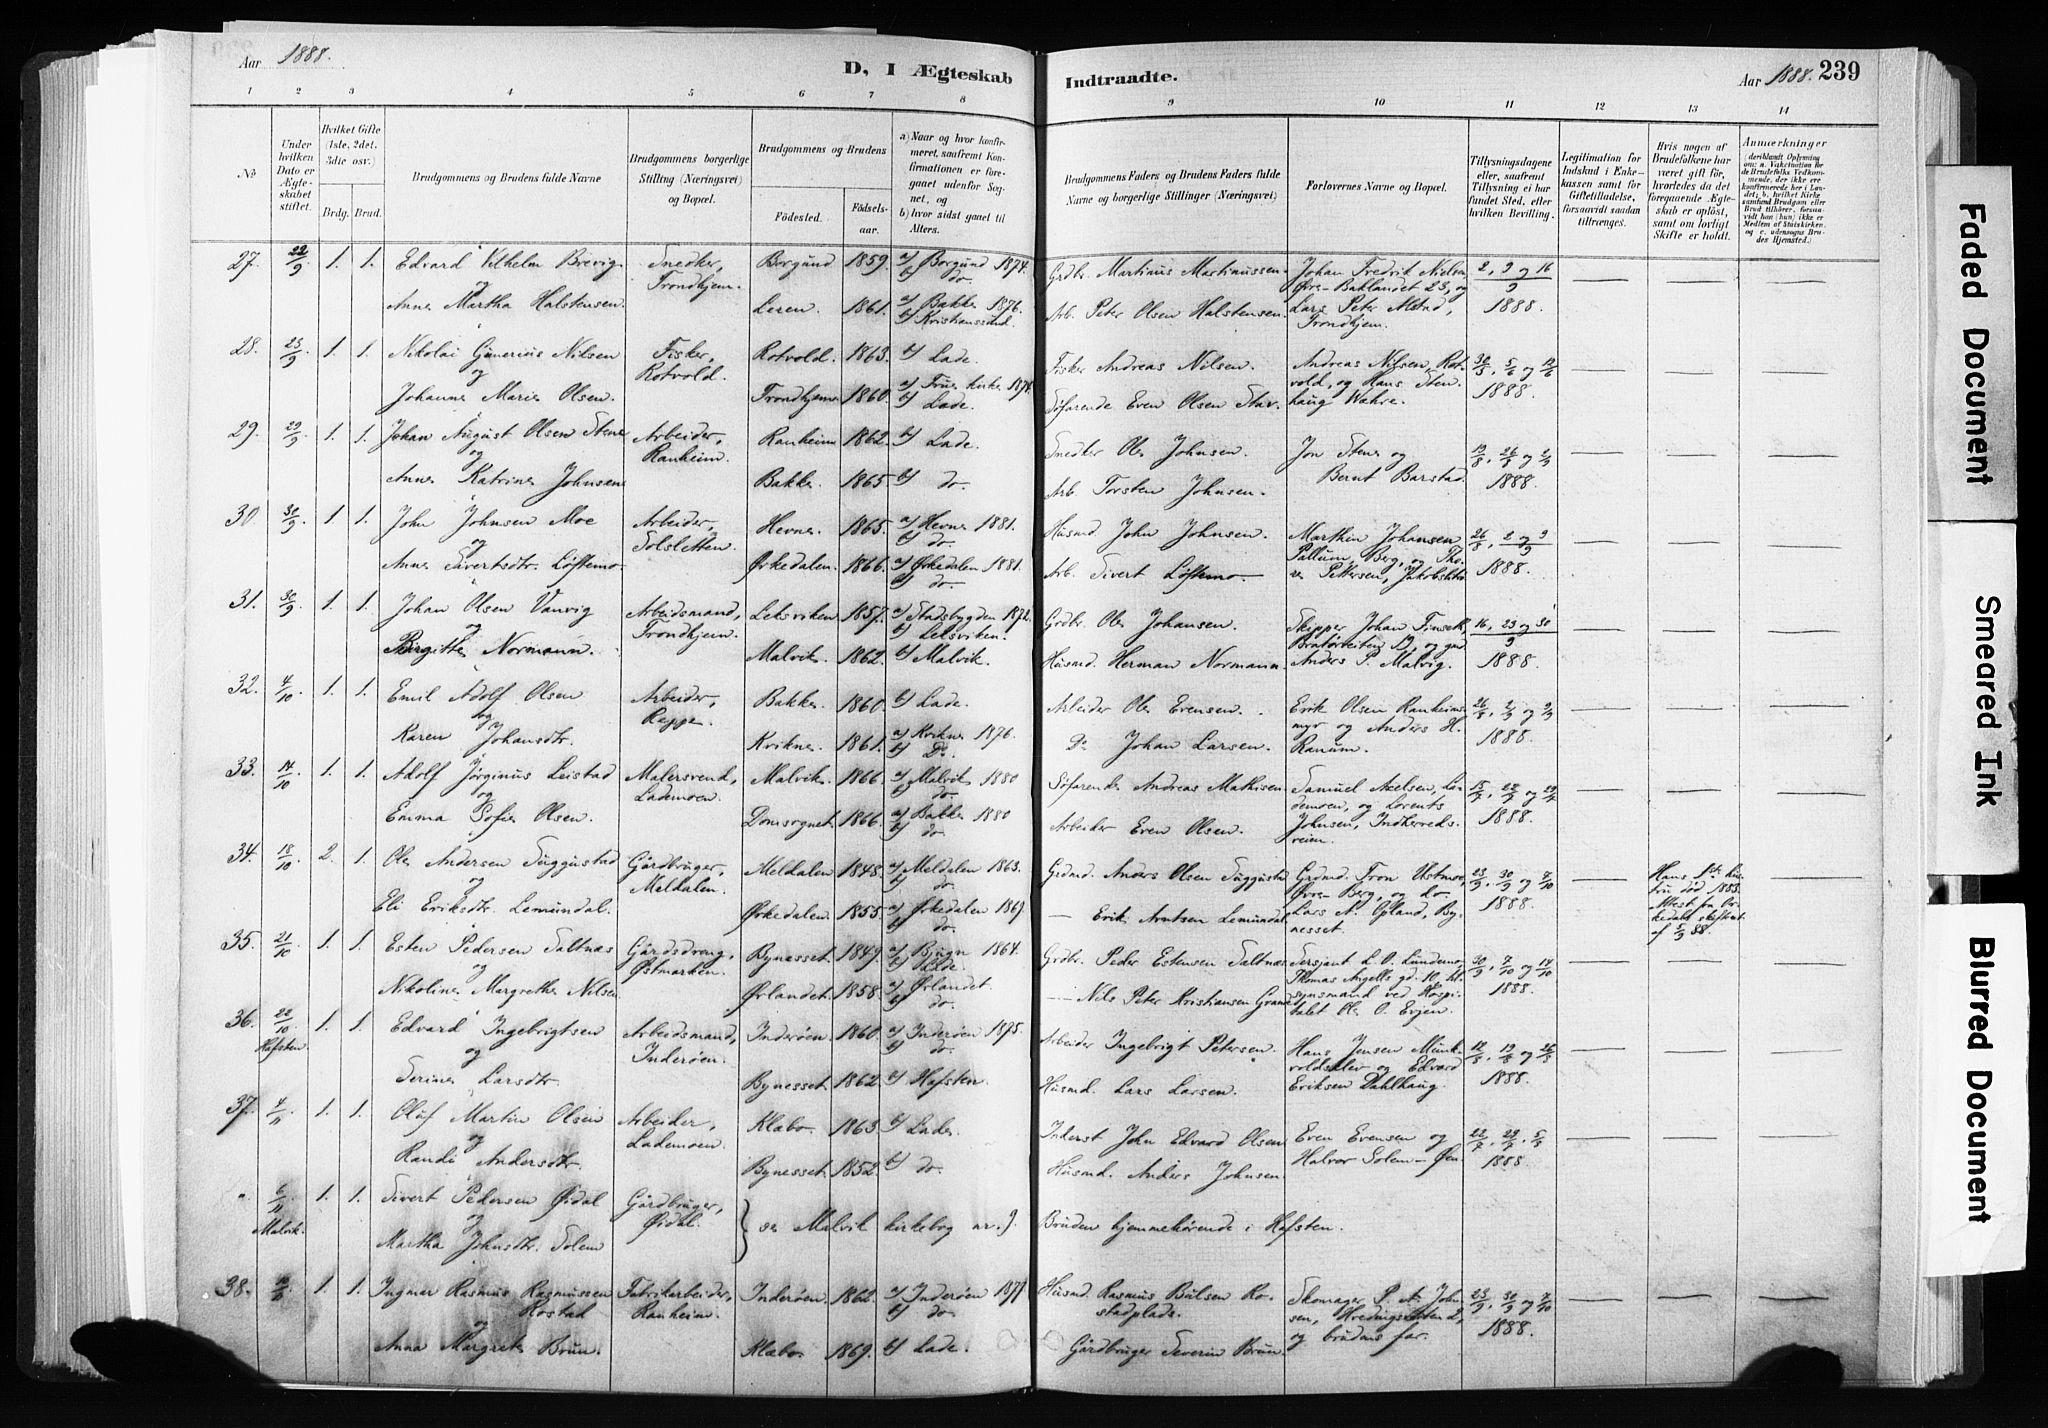 Aar 1888.
D, I Ægteskab
Indtraadte.
Aar 1888. 239
1 2 3 4 5 6 7 8 9 10 11 12 13 14
No
Under hvilken Dato er Ægteskabet stiftet.
Hvilket Gifte (1ste, 2det, 3die osv.)
Brdg. Brud.
Brudgommens og Brudens fulde Navne
Brudgommens borgerlige Stilling (Næringsvei) og Bopæl.
Brudgommens og Brudens
Fødested. Fødselsaar.
a) Naar og hvor konfirmeret, saafremt Konfirmationen er foregaaet udenfor Sognet, og
b) hvor sidst gaaet til Alters.
Brudgommens Faders og Brudens Faders fulde Navne og borgerlige Stillinger (Næringsvei)
Forlovernes Navne og Bopæl.
Tillysningsdagene eller, saafremt Tillysning ei har fundet Sted, efter hvilken Bevilling.
Legitimation for Indskud i Enkekassen samt for Giftetilladelse, forsaavidt saadan tiltrænges.
Hvis nogen af Brudefolkene har været gift før, hvorledes da det foregaaende Ægteskab er opløst, samt om lovligt Skifte er holdt.
Anmærkninger
27. 22/9 1. 1. Edvard Vilhelm Brevig Snedker, Borgund 1859. a) Borgund 1874. Grdbr. Martinus Martinussen Johan Fredrik Nielsen 2, 9 og 16/9
og Trondhjem. b) do. Øvre Baklandet 23, og
Anne Martha Halstensen. Leren. 1861. a) Bakke 1876. Arb. Peter Olsen Halstensen. Lars Peter Alstad, 1888.
b) Kristianssund. Trondhjem.
28. 23/9 1. 1. Nikolai Gunerius Nilsen Fisker, Rotvold. 1863. b) Lade. Fisker Andreas Nilsen. Andreas Nilsen, Rot- 30/5, 5/6 og 12/6
og Rotvold. vold, og Hans Sten-
Johanne Marie Olsen. Trondhjem 1860. a) Frue kirke 1874. Søfarende Even Olsen Stav. haug Wahre. 1888.
b) Lade.
29. 29/9 1. 1. Johan August Olsen Stene Arbeider, Ranheim 1862. b) Lade. Snedker Ole Johnsen. Jon Stene og 19/8, 26/8 og 2/9
og Ranheim. Bernt Barstad.
Anne Katrine Johnsen Bakke. 1865. b) do. Arb. Torsten Johnsen. 1888.
30. 30/9 1. 1. John Johnsen Moe Arbeider, Hevne. 1865. a) Hevne 1881. Husmd. John Johnsen. Marthin Johansen 26/8, 2 og 9/9
og Solsletten. b) do. Berg, og Tho-
Anne Sivertsdtr. Løftemo Ørkedalen. 1866. a) Ørkedalen 1881. Arb. Sivert Løftemo re Pettersen, 1888.
b) do.
31. 30/9 1. 1. Johan Olsen Vanvig Arbeidsmand, Leksviken 1857. a) Stadsbygden 1872. Grdbr. Ole Johansen. Skipper Johan Finseth, 16, 23 og 30/9
og Trondhjem. b) Leksviken.
Birgitte Normann. Malvik. 1862. b) Malvik. Husmd. Herman Normann Anders P. Malvig. 1888.
32. 4/10 1. 1. Emil Adolf Olsen Arbeider, Bakke. 1860. b) Lade. Arbeider Ole Evensen. Erik Olsen Ranheims- 26/8, 2/9 og 9/9
og Reppe. myr og Anders H.
Karen Johansdtr. Kvikne. 1861. a) Kvikne 1876. Do Johan Larsen. Ranum. 1888.
b) Do.
33. 14/10 1. 1. Adolf Jørginus Leistad Malersvend, Malvik 1866. a) Malvik 1880 Søfarende Andreas Mathisen Samuel Axelsen, La- 15/7, 22/7 og 29/7
og Lademoen. b) do. demoen, og Lorents
Emma Sofie Olsen. Domsognet 1866. a) Bakke 1880 Arbeider Even Olsen. Johnsen, Indherreds- 1888.
b) do veien.
34. 18/10 2. 1. Ole Andersen Syggustad Gårdbruger, Meldalen 1848. a) Meldalen 1863. Grdmd. Anders Olsen Syggustad Grdmd. Tron Ustmoe, 23/9, 30/9 og 7/10 Hans 1ste hus-
og Meldalen. b) do Øvre Berg, og do tru død 1883.
Eli Eriksdtr. Lemundal. Ørkedalen 1855. a) Ørkedalen 1869. — Erik Arntsen Lemundal Lars A. Opland, By- 1888. Attest fra Or-
b) do. nesset. kedals skifteret
af 5/9 88.
35. 21/10 1. 1. Esten Pedersen Saltnæs Gårdsdreng, Bynesset. 1849. a) Bjugn 1864. Grdbr. Peder Estensen Saltnæs Sersjant L. O. Lundemo, 30/9, 7/10 og 14/10
og Østmarken. b) Lade. Thomas Angells gd. 10, til-
Nikoline Margrethe Nilsen Ørlandet. 1858. a) Ørlandet. — Nils Peter Kristiansen synsmand ved Hospi- 1888.
b) do. talet Ole O. Evjen.
36. 22/10 1. 1. Edvard Ingebrigtsen Arbeidsmand, Inderøen. 1860. a) Inderøen 1875. Arbeider Ingebrigt Petersen. Hans Jensen Munk- 12/8, 19/8 og 26/8
Hafsten. og Inderøen. b) do. voldselev og Edvard
Serine Larsdtr. Bynesset. 1862. b) Hafsten. Husmd. Lars Larsen. Eriksen Dahlhaug. 1888.
37. 4/11 1. 1. Oluf Martin Olsen Arbeider, Klæbo. 1863. b) Lade. Inderst John Edvard Olsen Even Evensen og 22/7, 29/7, 5/8
og Lademoen. Halvor Solem — Øen
Randi Andersdtr. Bynesset. 1852. b) do. Husmd. Anders Johnsen. 1888.
". 6/11 1. 1. Sivert Pedersen Øidal Gårdbruger,
Malvik. og Øidal. } se Malvik kirkebog nr. 9. Bruden hjemmehørende i Hafsten.
Martha Johnsdtr. Solem
38. 1. 1. Ingmer Rasmus Rasmussen Fabrikarbeider, Inderøen 1862. a) Inderøen 1877 Husmd. Rasmus Bulsen Ro- Skomager P. A. John- 23/9, 30/9 og 7/10
Rostad Ranheim. b) do. stadplads. sen,
og
Anna Margrete Brun. Klæbo. 1869. b) Lade. Gårdbruger Severin Brun. og brudens far. 1888.
Faded Document
Smeared Ink
Blurred Document